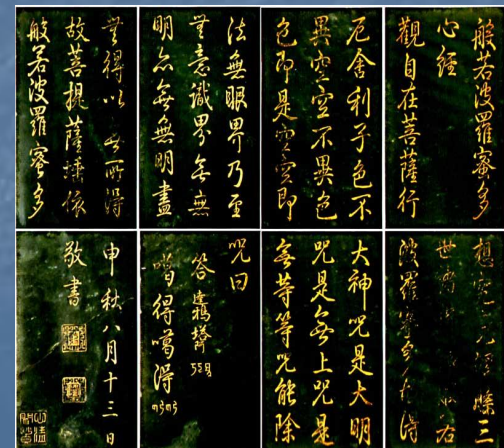 般若波羅蜜多
心經
觀自在菩薩行
厄舍利子色不
異空空不異色
色即是空空即
法無眼界乃至
無意識界無無
明亦無無明盡
無得以無所得
故菩提薩埵依
般若波羅蜜多
想究竟涅槃三
世諸佛依般若
波羅蜜多故得
大神咒是大明
咒是無上咒是
無等等咒能除
咒曰
答達鴉
得噶得
申秋八月十三日
敬書